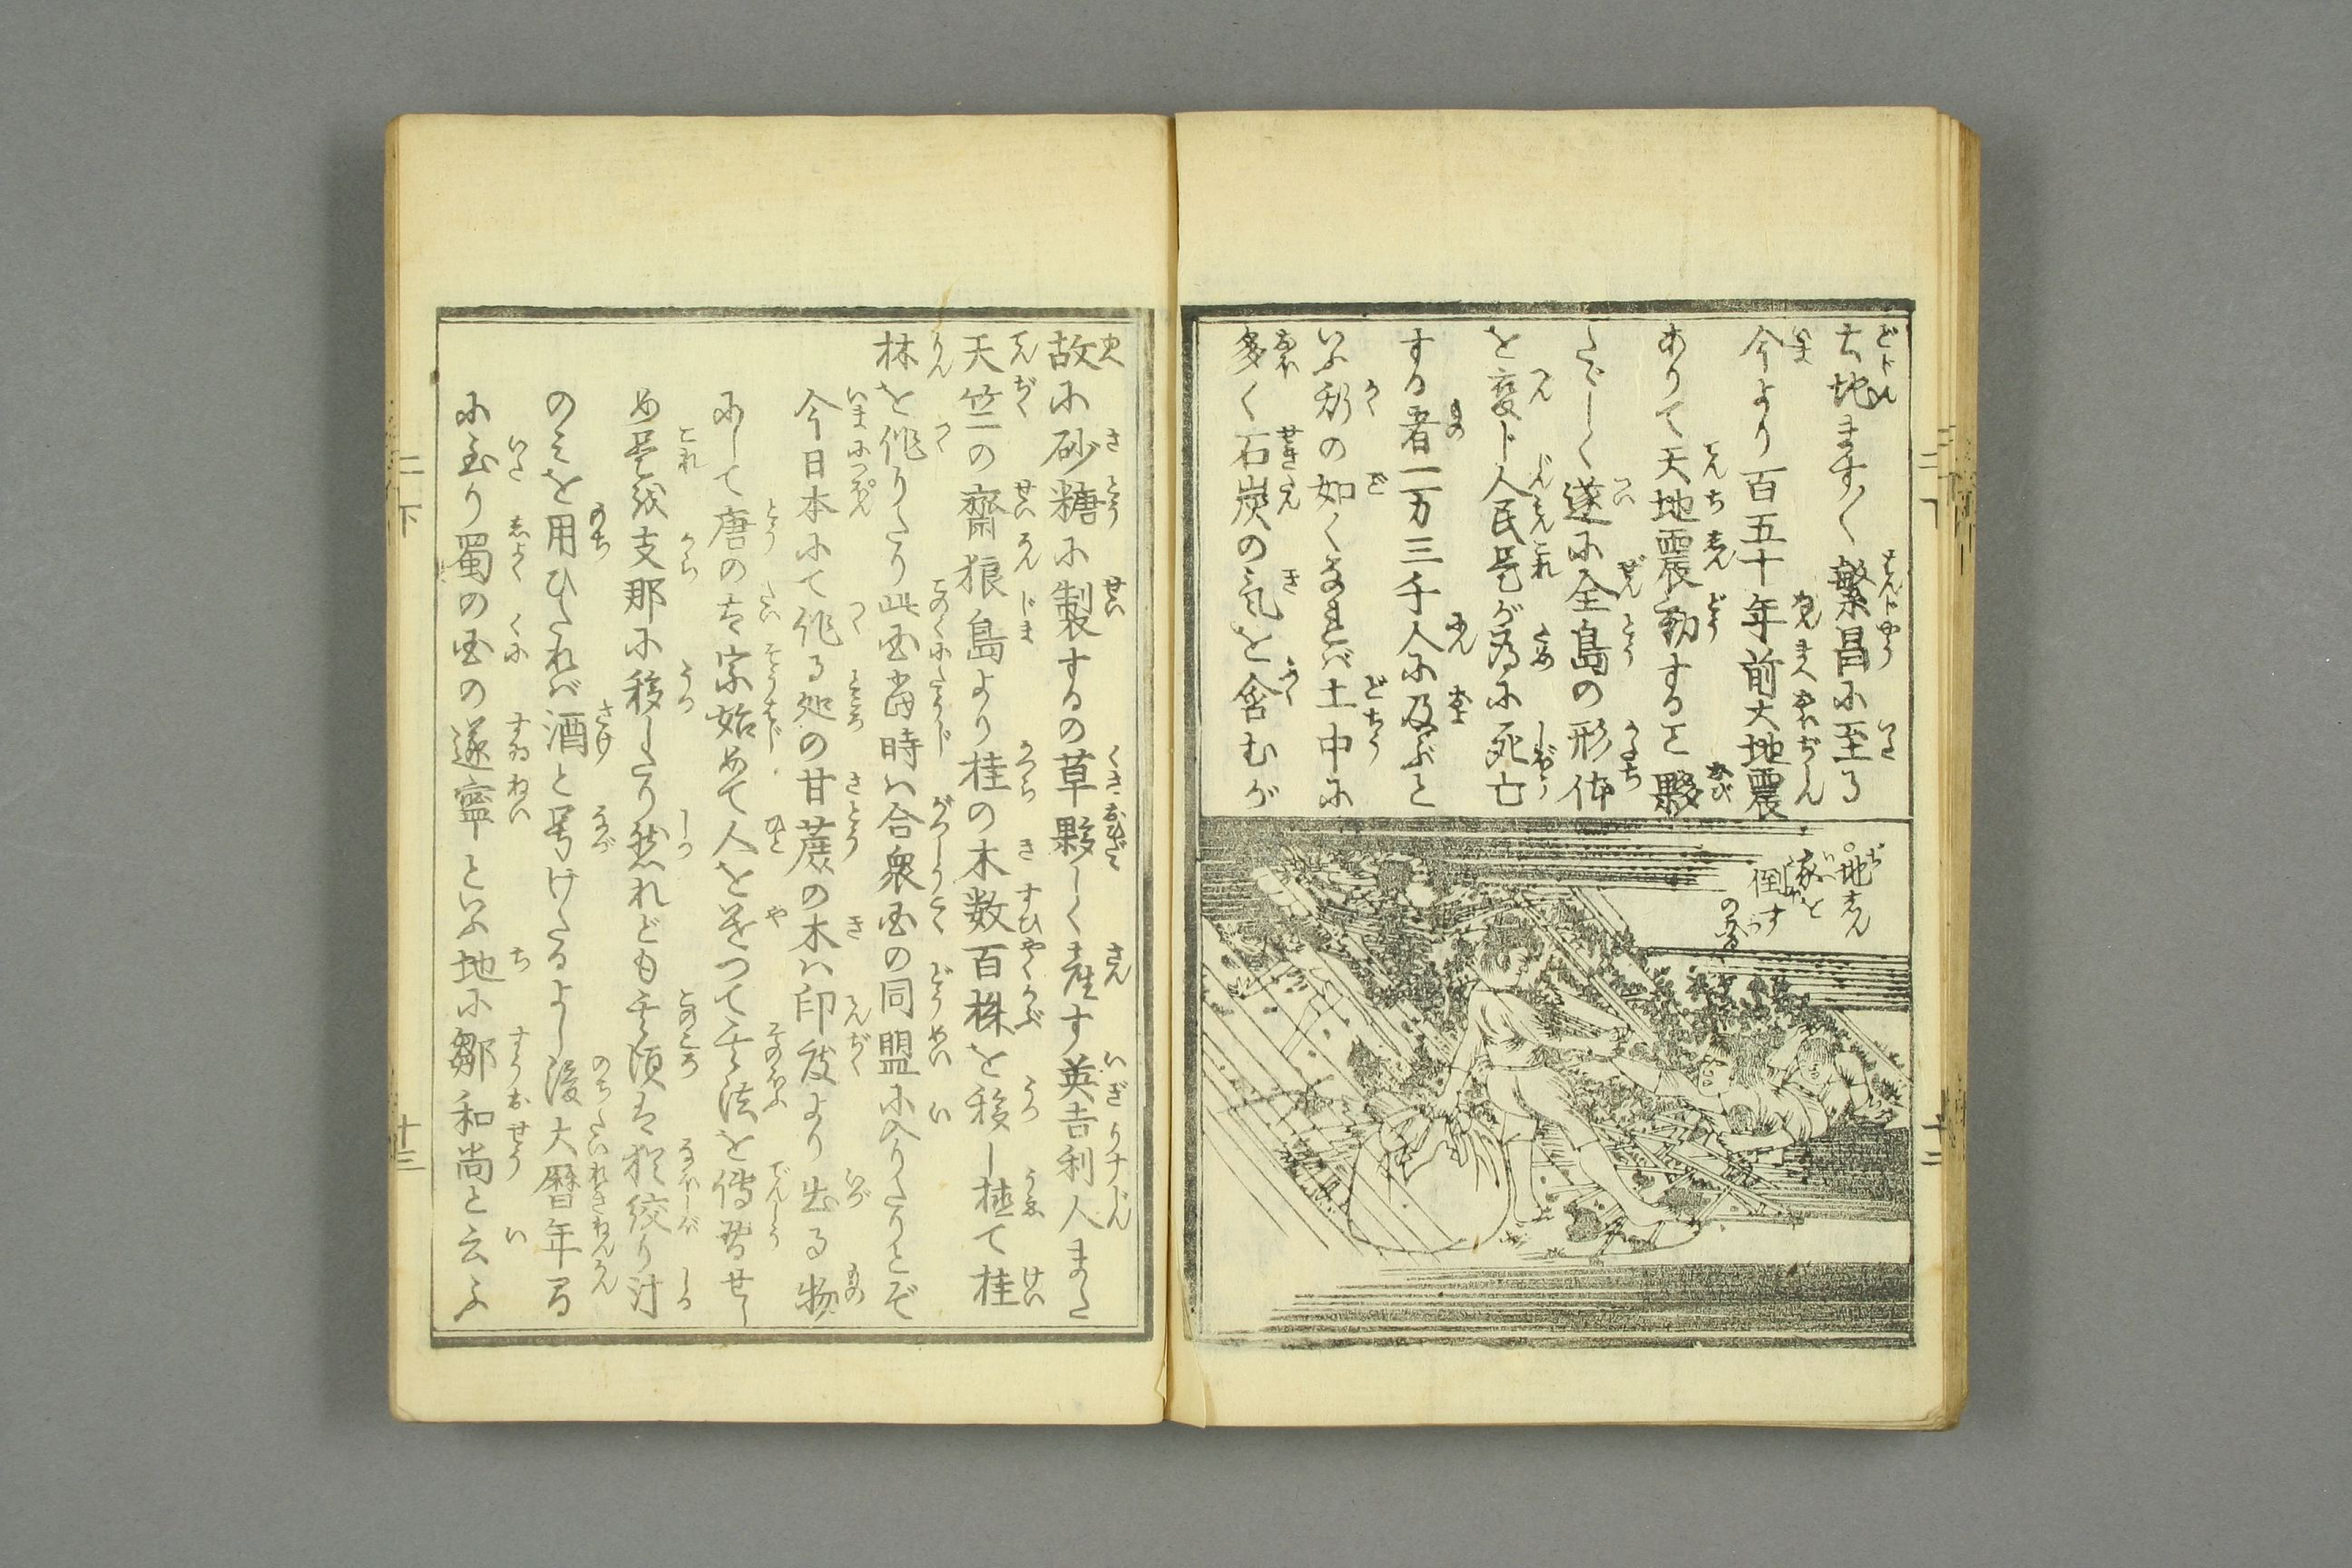 土地ます〳〵繁昌に至る
今より百五十年前大地震
ありて天地震動すること夥
たゞしく遂に全島の形体
を変ト人民是が為に死亡
する者一万三千人に及ぶと
いふ形の如くなれバ土中に
多く石炭の気を含むが
○地しん
家を
倒す
の図
故に砂糖に製するの草夥しく産す英吉利人また
天竺の齋狼島より桂の木数百株を移し植て桂
林を作りたり此国当時ハ合衆国の同盟に入りたりとぞ
今日本にて作る処の甘蔗の木ハ印度より出る物
にして唐の太宗始めて人を遣つて其法を傳習せし
め是を支那に移したり然れども其頃は猶絞り汁
のみを用ひたれバ酒と号けたるよし後大暦年間
に至り蜀の国の遂寧といふ地に鄒和尚と云ふ
二下
十三